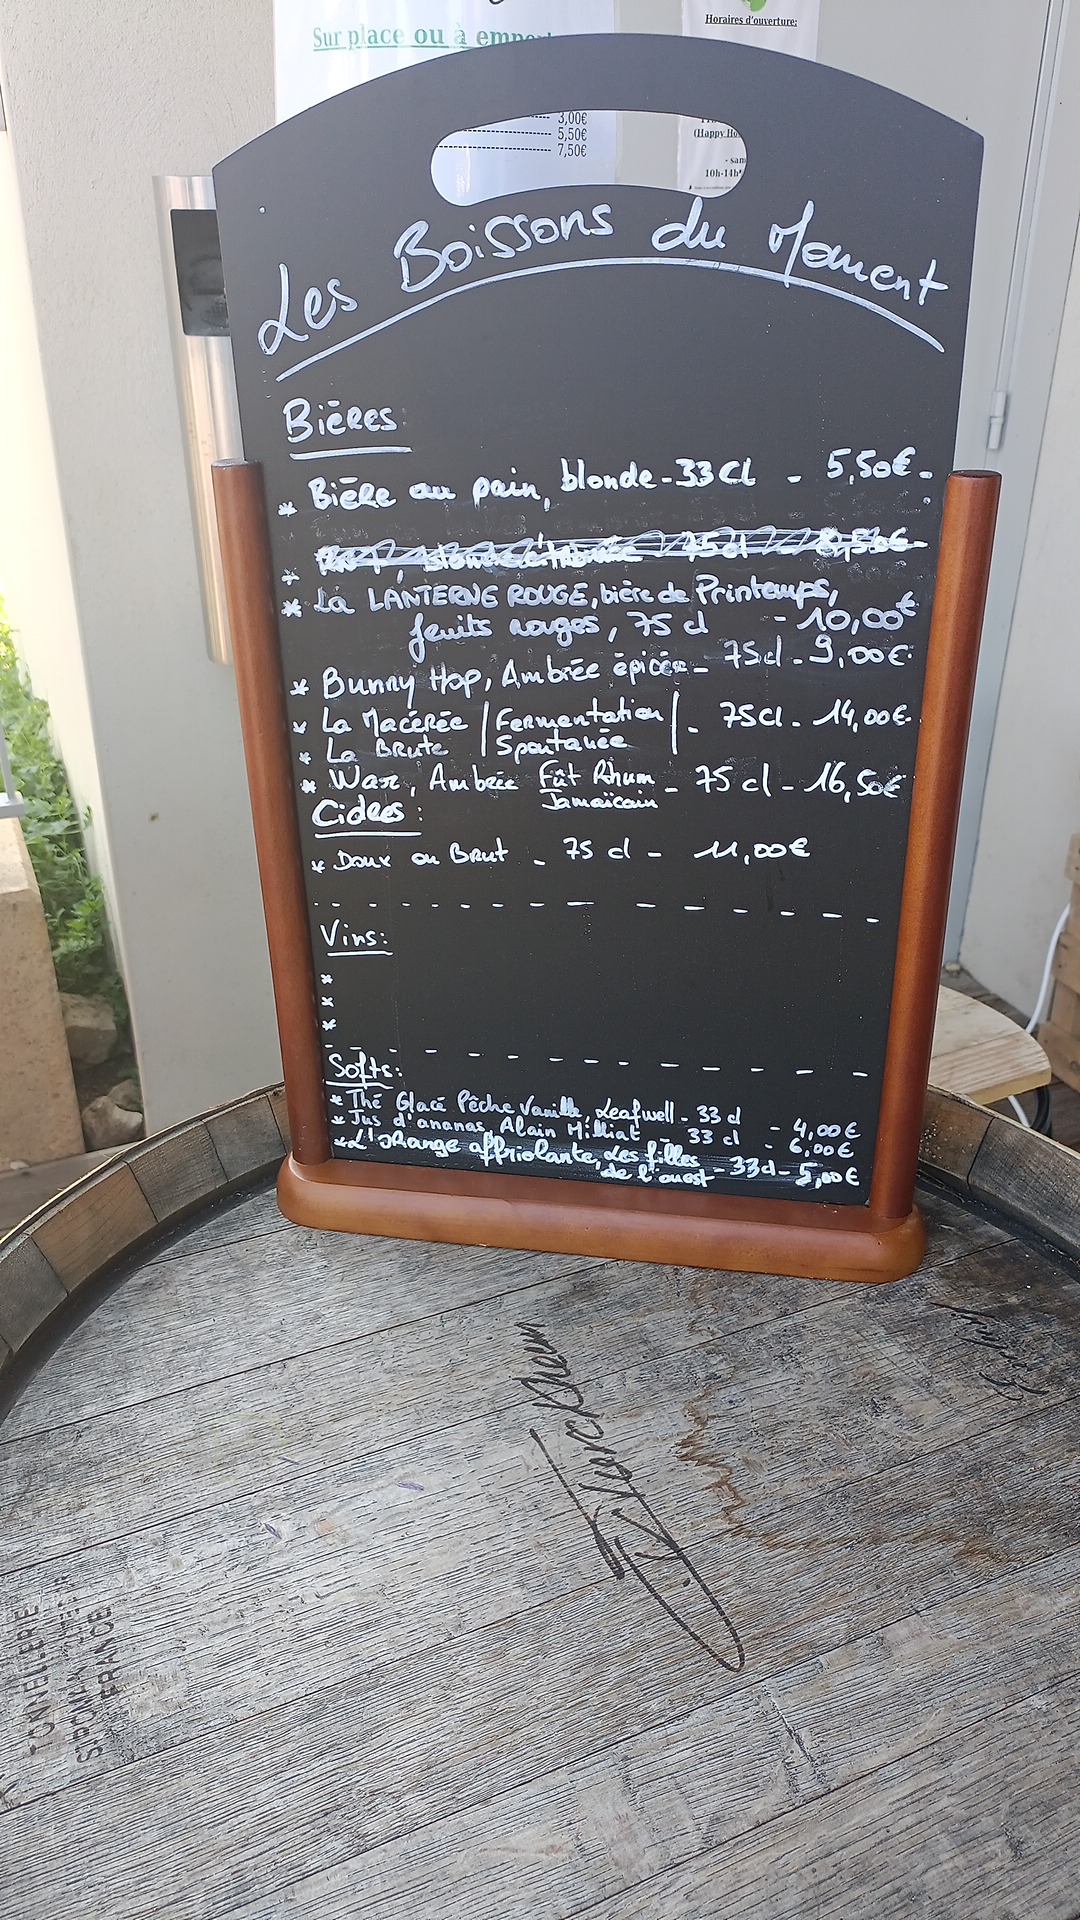 Sur place ou à
Horaires d'ouverture:
3,00€
5,50€
7,50€
(Happy
10h-14h
Les Boissons du Moment
Bières
* Bière au pain, blonde - 33Cl - 5,50€ -
* 75cl 8,50€
* La LANTERNE ROUGE, bière de Printemps,
fruits rouges, 75 cl - 10,00€
* Bunny Hop, Ambrée épicée - 75cl - 9,00€
* La Macérée | Fermentation | - 75cl - 14,00€
* La Brute | Spontanée |
* War, Ambrée Fût Rhum - 75 cl - 16,50€
Jamaïcain
Cidres :
* Doux ou Brut - 75 cl - 11,00€
Vins:
*
*
*
Softs:
* Thé Glacé Pêche Vanille, Leafwell - 33 cl - 4,00€
* Jus d'ananas, Alain Milliat - 33 cl - 6,00€
* L'orange affriolante, Les filles - 33cl - 5,00€
de l'ouest
TONNELLERIE
SIROMA
FRANCE